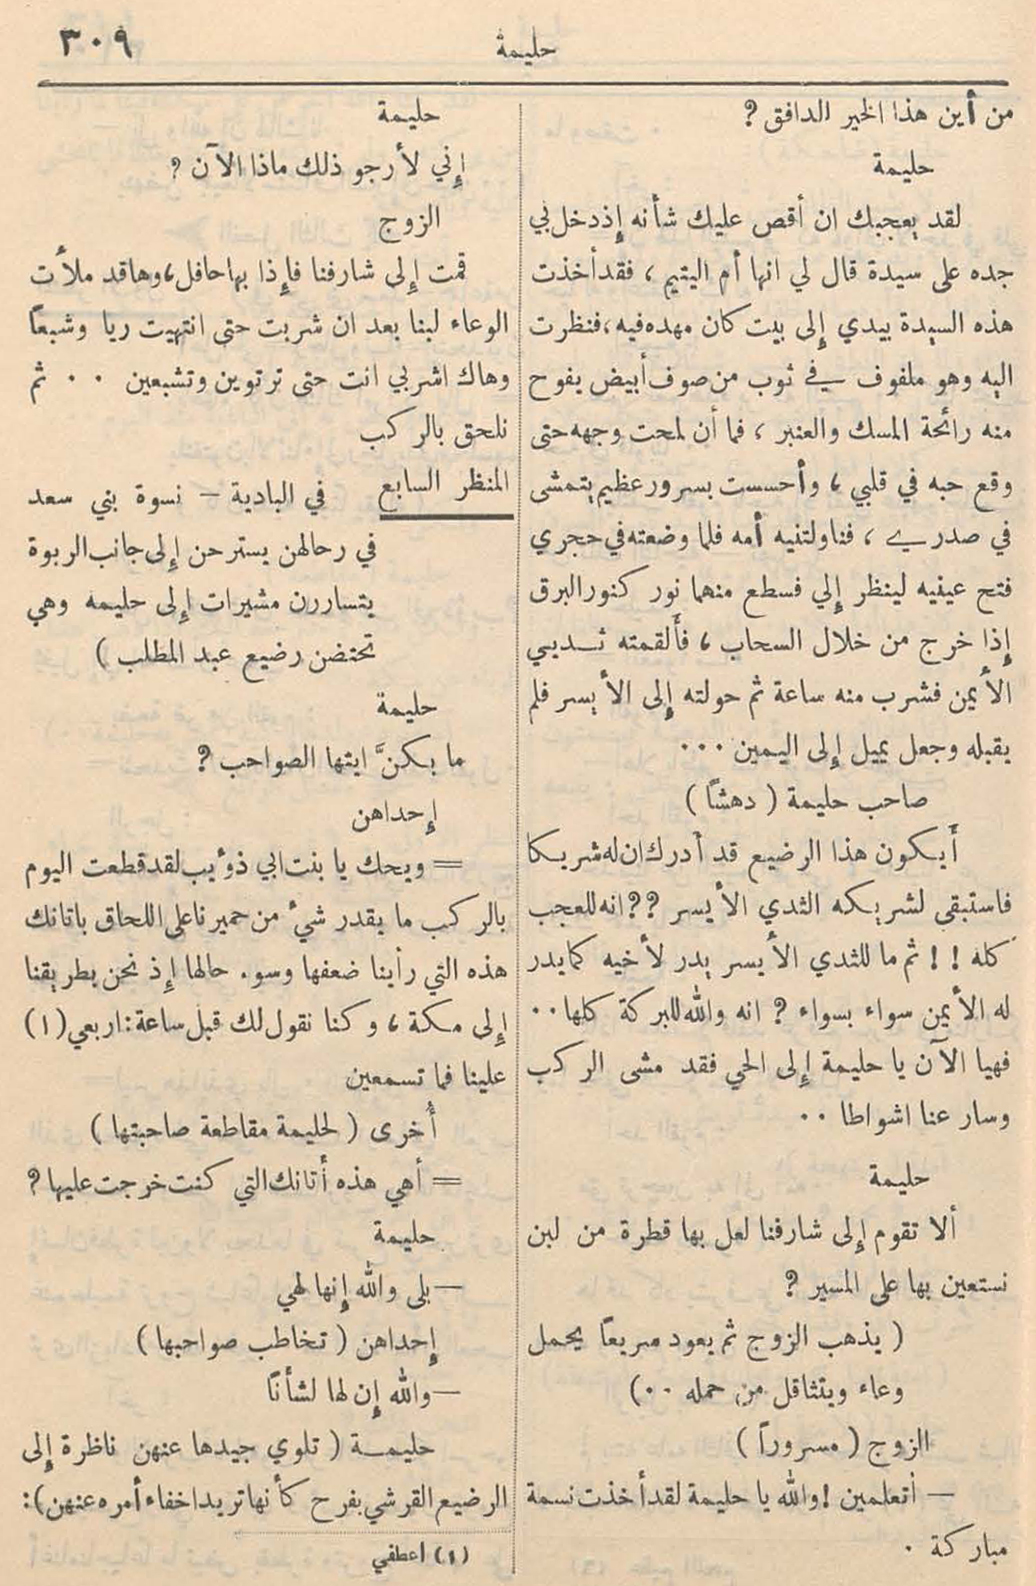 حليمة
٣٠٩
من أين هذا الخير الدافق ؟
حليمة
لقد يعجبك ان أقص عليك شأنه إذ دخل بي
جده على سيدة قال لي انها أم اليتيم ، فقد أخذت
هذه السيدة بيدي إلى بيت كان مهده فيه ، فنظرت
اليه وهو ملفوف في ثوب من صوف أبيض يفوح
منه رائحة المسك والعنبر ، فما أن لمحت وجهه حتى
وقع حبه في قلبي ، وأحسست بسرور عظيم يتمشى
في صدري ، فناولتنيه أمه فلما وضعته في حجري
فتح عينيه لينظر إلي فسطع منهما نور كنور البرق
إذا خرج من خلال السحاب ، فألقمته ثديي
الأيمن فشرب منه ساعة ثم حولته إلى الأيسر فلم
يقبله وجعل يميل إلى اليمين ...
صاحب حليمة ( دهشاً )
أيكون هذا الرضيع قد أدرك ان له شريكا
فاستبقى لشريكه الثدي الأيسر ؟؟ انه للعجب
كله ! ! ثم ما للثدي الأيسر يدر لأخيه كما يدر
له الأيمن سواء بسواء ؟ انه والله للبركة كلها ..
فهيا الآن يا حليمة إلى الحي فقد مشى الركب
وسار عنا اشواطا ..
حليمة
ألا تقوم إلى شارفنا لعل بها قطرة من لبن
نستعين بها على المسير ؟
( يذهب الزوج ثم يعود سريعاً يحمل
وعاء ويتثاقل من حمله ..)
الزوج ( مسروراً )
— أتعلمين ! والله يا حليمة لقد أخذت نسمة
مباركة .
حليمة
إني لأرجو ذلك ماذا الآن ؟
الزوج
قمت إلى شارفنا فإذا بها حافل ، وها قد ملأت
الوعاء لبنا بعد ان شربت حتى انتهيت ريا وشبعاً
وهاك اشربي انت حتى ترتوين وتشبعين .. ثم
نلحق بالركب
المنظر السابع في البادية — نسوة بني سعد
في رحالهن يسترحن إلى جانب الربوة
يتساررن مشيرات إلى حليمه وهي
تحتضن رضيع عبد المطلب )
حليمة
ما بكنَّ ايتها الصواحب ؟
إحداهن
= ويحك يا بنت ابي ذوئيب لقد قطعت اليوم
بالركب ما يقدر شيء من حميرنا على اللحاق باتانك
هذه التي رأينا ضعفها وسوء حالها إذ نحن بطريقنا
إلى مكة ، وكنا نقول لك قبل ساعة : اربعي (١)
علينا فما تسمعين
أُخرى ( لحليمة مقاطعة صاحبتها )
= أهي هذه أتانك التي كنت خرجت عليها ؟
حليمة
— بلى والله إنها لهي
إحداهن ( تخاطب صواحبها )
— والله إن لها لشأناً
حليمة ( تلوي جيدها عنهن ناظرة إلى
الرضيع القرشي بفرح كأنها تريد اخفاء أمره عنهن ) :
(١) اعطفي